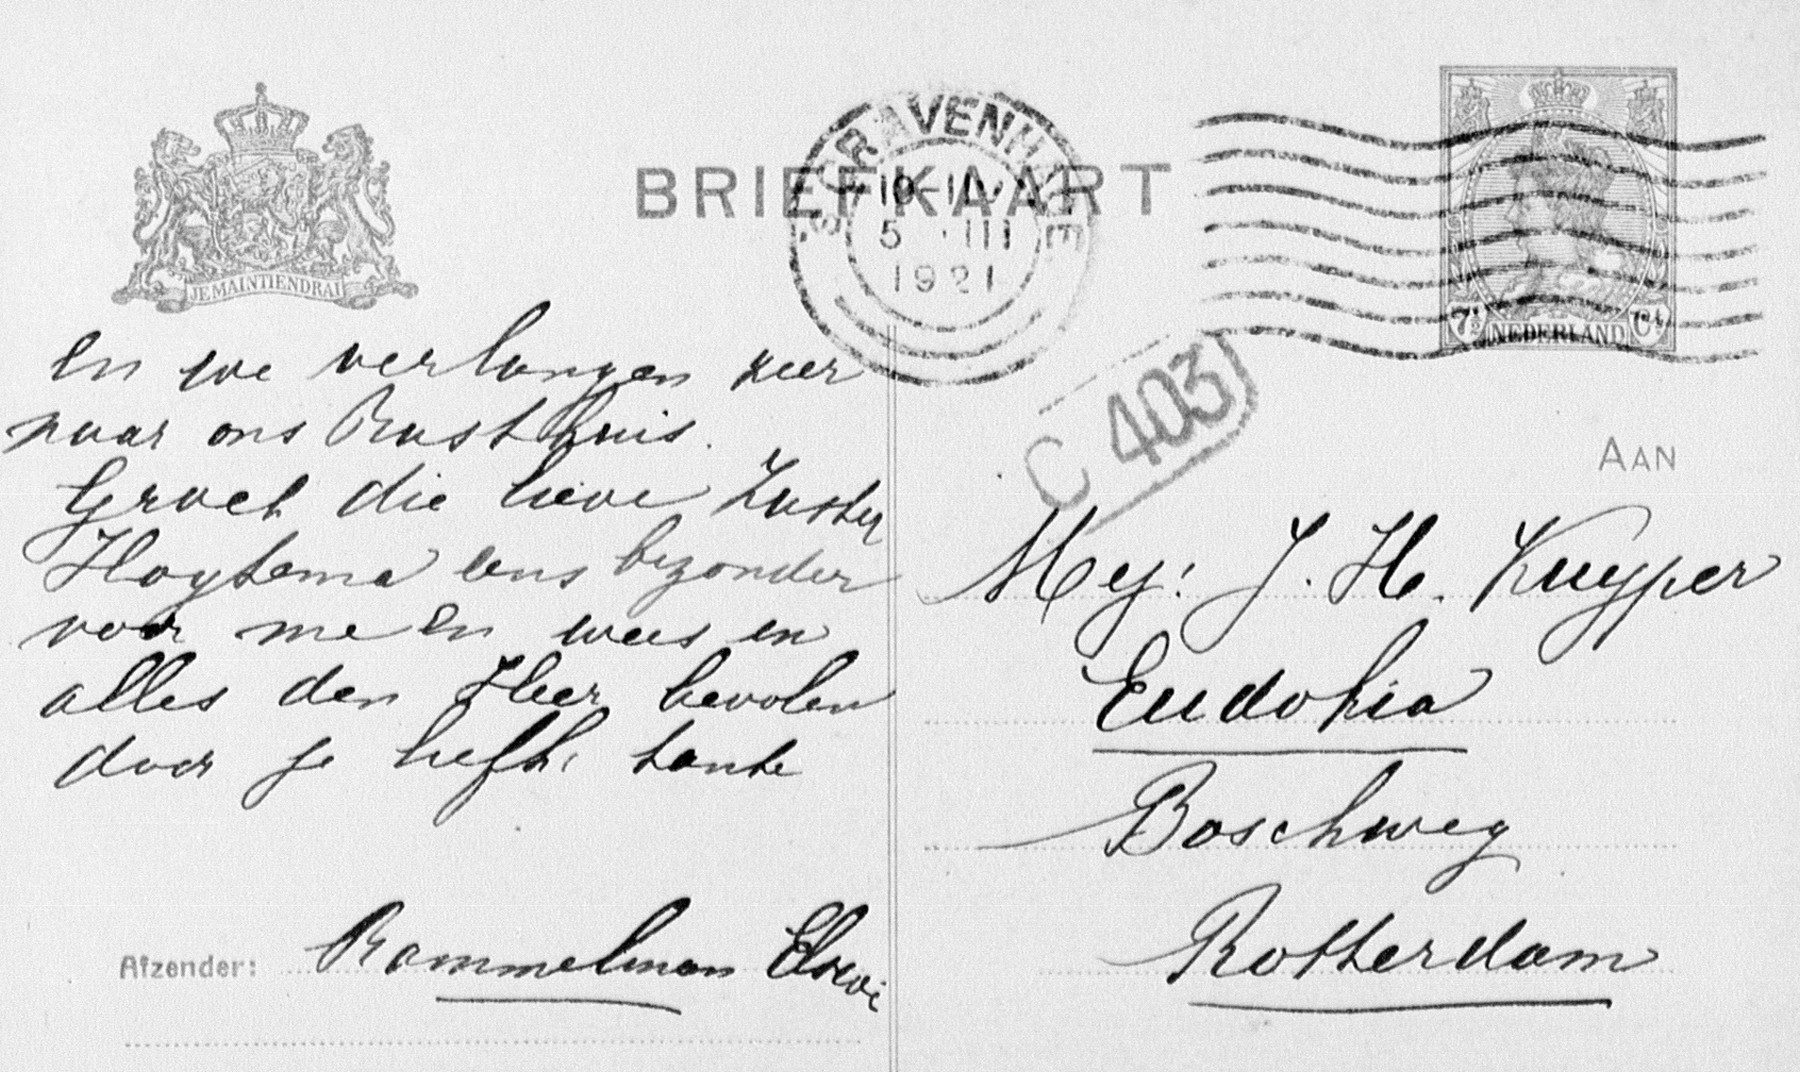 JE MAINTIENDRAI
BRIEFKAART
'S GRAVENHAGE
5 III
1921
7½ Ct
NEDERLAND
C 403
en we verlangen zeer
naar ons Rusthuis.
Groet die lieve Zuster
Hoytema eens bezonder
voor me en wees in
alles den Heer bevolen
door je liefh. tante
Afzender: Rammelman Elsevi
AAN
Mej: J. H. Kuyper
Eudokia
Boschweg
Rotterdam